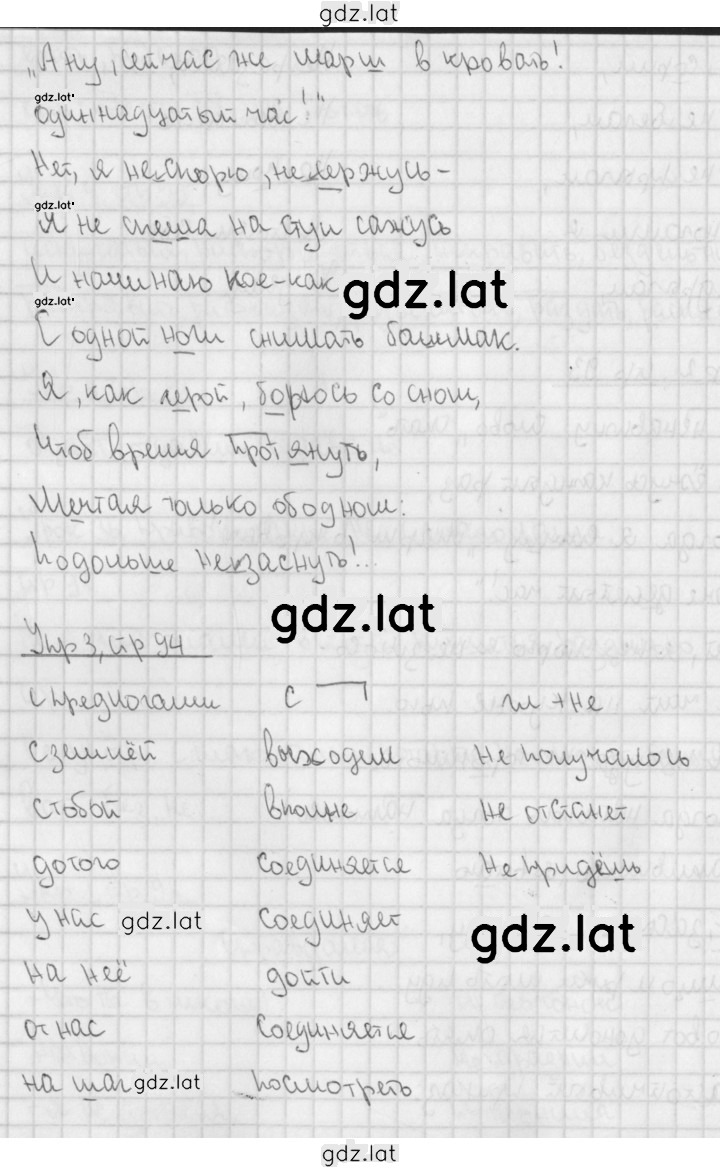 gdz.lat
„А ну, сейчас же марш в кровать!
gdz.lat
Одиннадцатый час!"
Нет, я не спорю, не держусь –
gdz.lat
Я не спеша на стул сажусь
И начинаю кое-как
gdz.lat
gdz.lat
С одной ноги снимать башмак.
Я, как герой, борюсь со сном,
Чтоб время протянуть,
Мечтая только об одном:
Подольше не заснуть!..
gdz.lat
Упр 3, стр 94
с предлогами с гл + не
с землёй выходем не получалось
с тобой вполне не отстанет
до того соединяется не придёшь
у нас gdz.lat соединяет
gdz.lat
на неё дойти
от нас соединяется
на шаг gdz.lat посмотреть
gdz.lat